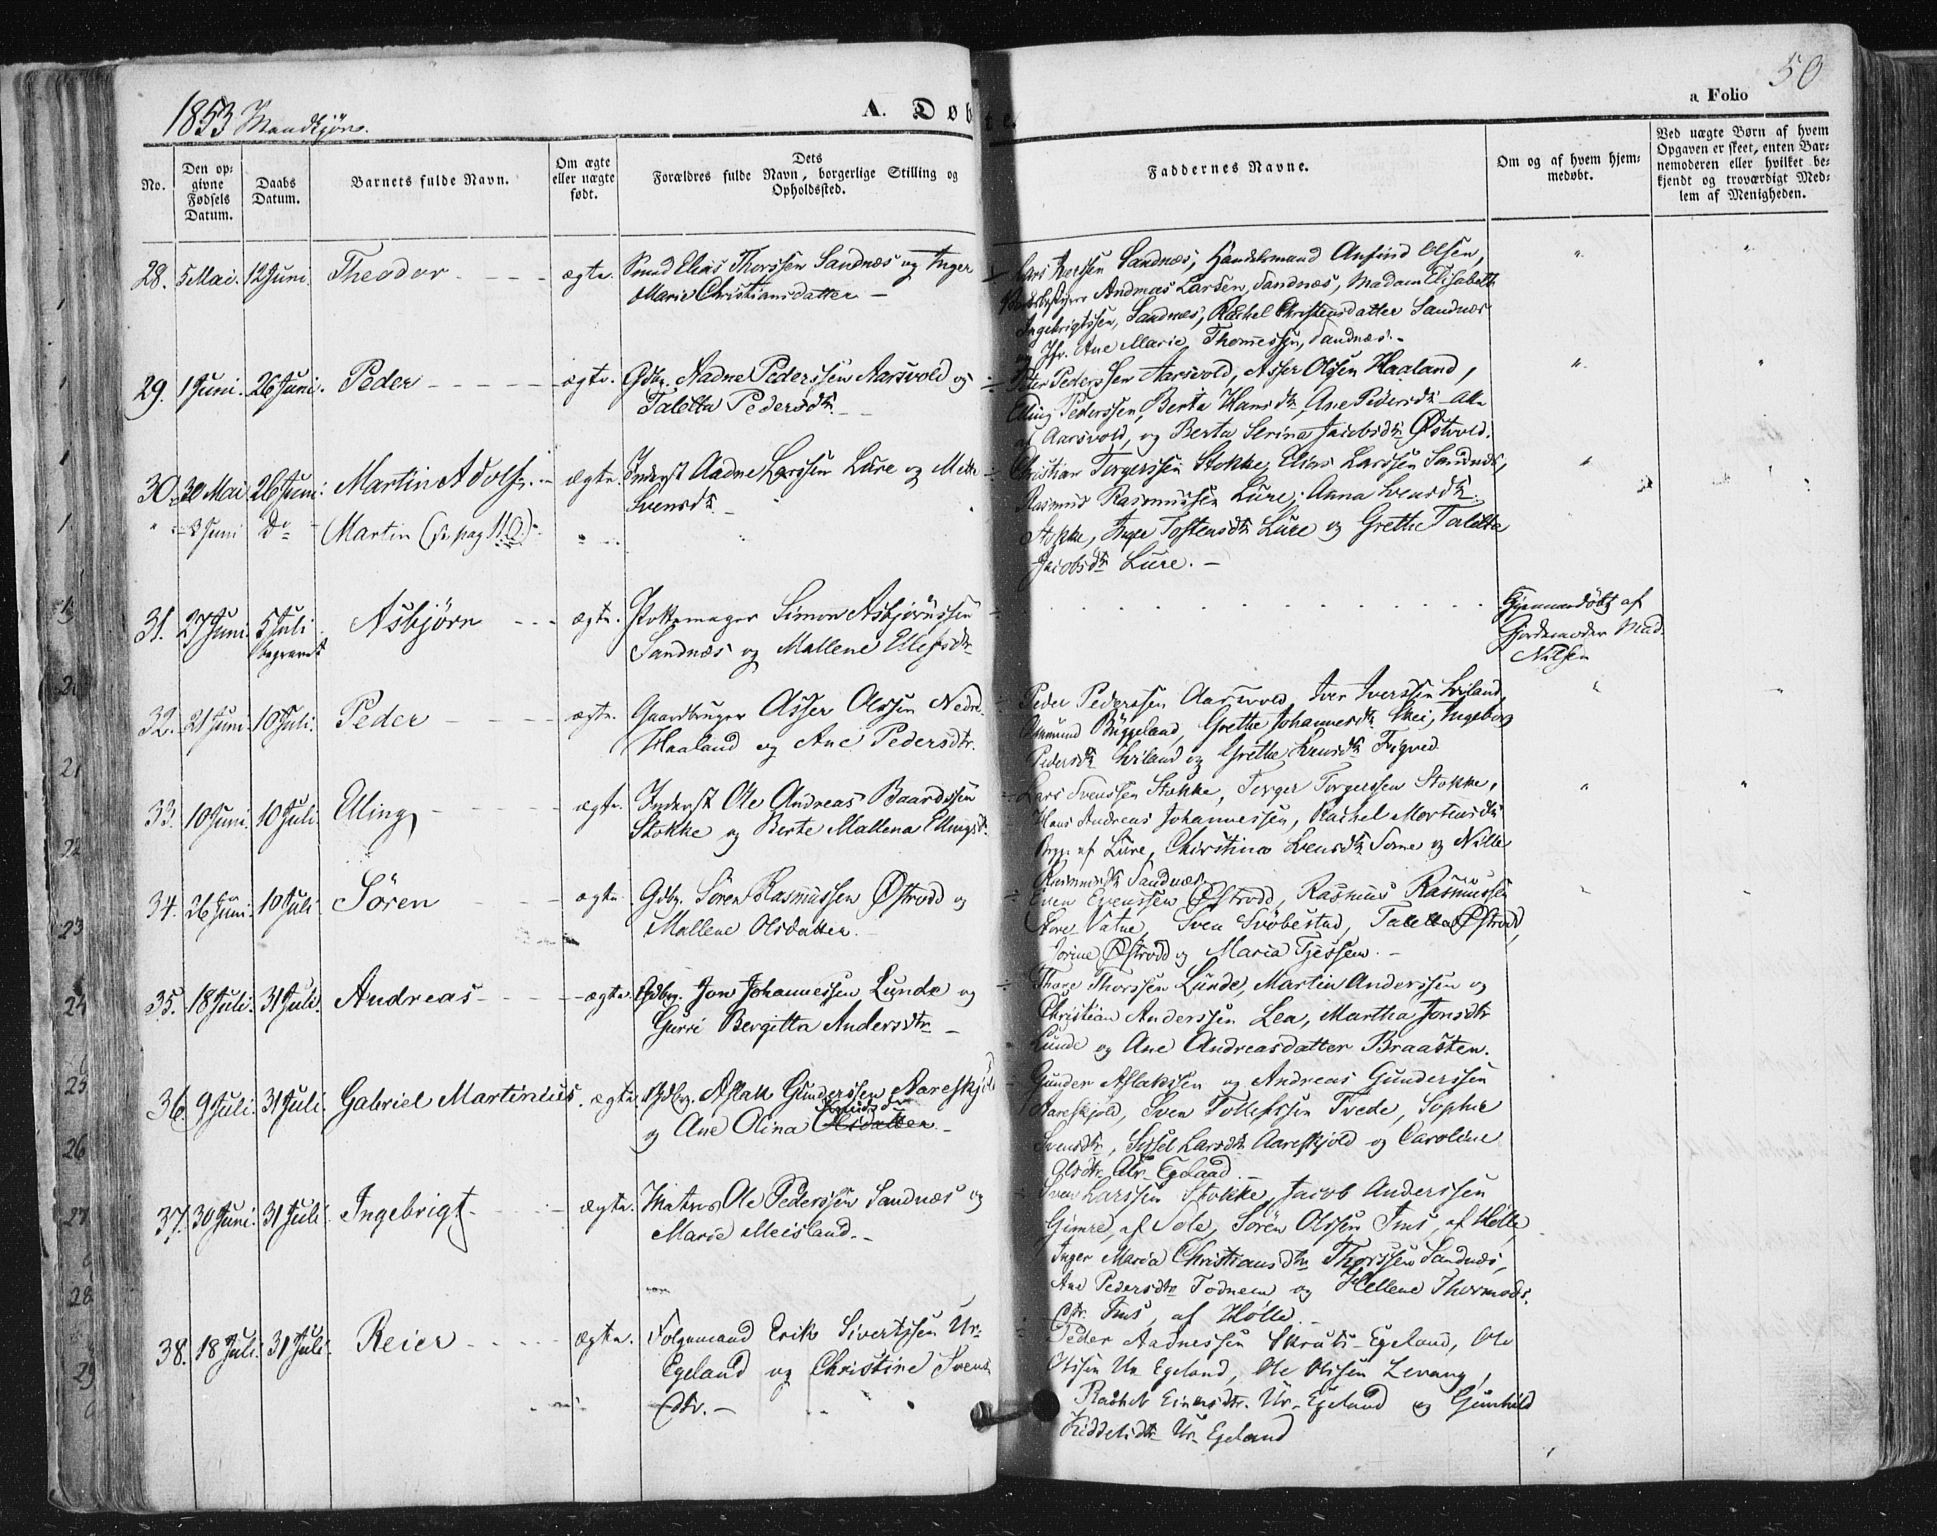 1853 Mandkjøn.
A. Døbte.
a Folio 50
No.
Den op-
givne
Fødsels
Datum.
Daabs
Datum.
Barnets fulde Navn.
Om ægte
eller uægte
født.
Dets
Forældres fulde Navn, borgerlige Stilling og
Opholdssted.
Faddernes Navne.
Om og af hvem hjem-
medøbt.
Ved uægte Børn af hvem
Opgaven er skeet, enten Bar-
nemoderen eller hvilket be-
kjendt og troværdigt Med-
lem af Menigheden.
28. 5 Mai. 12 Juni Theodor ægte. Smed Elias Thorssen Sandnæs og Inger
Marie Christiansdatter
Lars Iversen Sandnæs, Handelsmand Anfind Olsen,
Andreas Larsen, Sandnæs, Madam Elisabeth
Ingebrigtssen, Sandnæs, Rachel Christensdatter Sandnæs
og Jfr. Ane Marie Thomessen, Sandnæs.
29. 1 Juni. 26 Juni. Peder ægte. Gdbg. Aadne Pederssen Aarsvold og
Taletta Pedersdtr.
Peter Pederssen Aarsvold, Asser Olsen Haaland,
Elling Pederssen, Berta Hansdtr, Ane Pedersdtr alle
af Aarsvold, og Berta Serina Jacobsdtr Østvold.
30. 30 Mai 26 Juni. Martin Adolf. ægte. Inderst Aadne Larssen Lure og Mette
Svensdtr.
Christian Torgerssen Stokke, Elias Larssen Sandnæs,
Rasmus Rasmussen Lure, Anna Svensdtr
Stokke, Inger Tostensdtr Lure og Grethe Taletta
Jacobsdtr Lure.
" 3 Juni Do Martin (se pag 110)
31. 27 Juni. 5 Juli
begravet
Asbjørn ægte. Pottemager Simon Asbjørnssen
Sandnæs og Mallene Ellefsdtr
Hjemmedøbt af
Gjordemoder Mad.
Nilsen
32. 21 Juni. 10 Juli. Peder ægte. Gaardbruger Asser Olssen Nedre
Haaland og Ane Pedersdtr.
Peder Pederssen Aarsvold, Iver Iverssen Heiland,
Osmund Byggeland, Grethe Johannesdtr Skei, Ingeborg
Pedersdtr Heiland og Grethe Svensdtr Figved
33. 10 Juni. 10 Juli. Elling ægte. Inderst Ole Andreas Baardssen
Stokke og Berte Mallena Ellingsdtr.
Lars Svenssen Stokke, Torger Torgerssen Stokke,
Hans Andreas Johannessen, Rachel Mortensdtr
af Lure, Christina Svensdtr Some og Nille
Rasmusdtr Sandnæs
34. 26 Juni. 10 Juli Søren ægte. Gdbg. Søren Rasmussen Østrodd og
Mallene Olsdatter.
Even Evenssen Østrodd, Rasmus Rasmussen
Store Vatne, Sven Svøbestad, Taletta Østrodd,
Jorine Østrodd og Maria Tjessem.
35. 18 Juli. 31 Juli. Andreas ægte. Gdbg. Jon Johannessen Lunde og
Gurri Bergitta Andersdtr
Thore Thorssen Lunde, Martin Anderssen og
Christian Anderssen Lea, Martha Jonsdtr
Lunde og Ane Andreasdatter Braasten.
36. 9 Juli. 31 Juli. Gabriel Martinius. ægte. Gdbg. Aslak Gunderssen Aareskjold
og Ane Olina Olsdatter
Gunder Aslakssen og Andreas Gunderssen
Aareskjold, Sven Tollefssen Tvede, Sophie
Svensdtr, Sissel Larsdtr Aareskjold og Caroline
Olsdtr Ur Egeland.
37. 30 Juni. 31 Juli. Ingebrigt ægte. Matros Ole Pederssen Sandnæs og
Marie Meisland.
Sven Larssen Stokke, Jacob Anderssen
Gimre, af Sole, Søren Olssen Ims, af Hølle,
Inger Maria Christiansdtr Thorssen Sandnæs,
Ane Pedersdtr Todnem og Hellene Thormods-
dtr. Ims, af Hølle.
38. 18 Juli. 31 Juli. Reier ægte. Følgemand Erik Sivertssen Ur-
Egeland og Christine Svens-
dtr.
Peder Aadnessen Skruts-Egeland, Ole
Olssen Ur Egeland, Ole Olssen Levang,
Rachel Einersdtr. Ur-Egeland og Gunhild
Kiddelsdtr Ur-Egeland